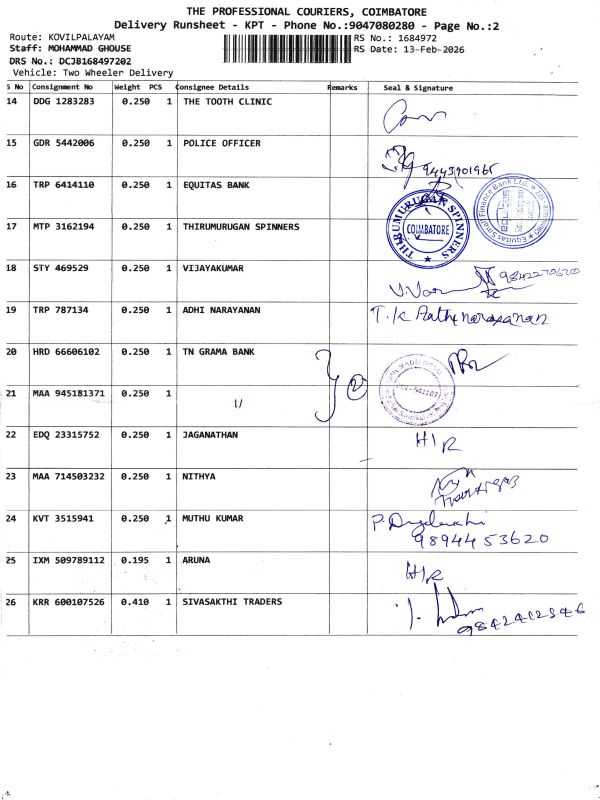 THE PROFESSIONAL COURIERS, COIMBATORE
Delivery Runsheet - KPT - Phone No.:9047080280 - Page No.:2
Route: KOVILPALAYAM RS No.: 1684972
Staff: MOHAMMAD GHOUSE RS Date: 13-Feb-2026
DRS No.: DCJB168497202
Vehicle: Two Wheeler Delivery
S No Consignment No Weight PCS Consignee Details Remarks Seal & Signature
14 DDG 1283283 0.250 1 THE TOOTH CLINIC
15 GDR 5442006 0.250 1 POLICE OFFICER
9443901965
16 TRP 6414110 0.250 1 EQUITAS BANK
Equitas Small Finance Bank Ltd.
17 MTP 3162194 0.250 1 THIRUMURUGAN SPINNERS
THIRUMURUGAN SPINNERS
COIMBATORE
18 STY 469529 0.250 1 VIJAYAKUMAR
19 TRP 787134 0.250 1 ADHI NARAYANAN
T.K
20 HRD 66606102 0.250 1 TN GRAMA BANK
21 MAA 945181371 0.250 1 11
22 EDQ 23315752 0.250 1 JAGANATHAN
H/R
23 MAA 714503232 0.250 1 NITHYA
24 KVT 3515941 0.250 1 MUTHU KUMAR
9894453620
25 IXM 509789112 0.195 1 ARUNA
H/R
26 KRR 600107526 0.410 1 SIVASAKTHI TRADERS